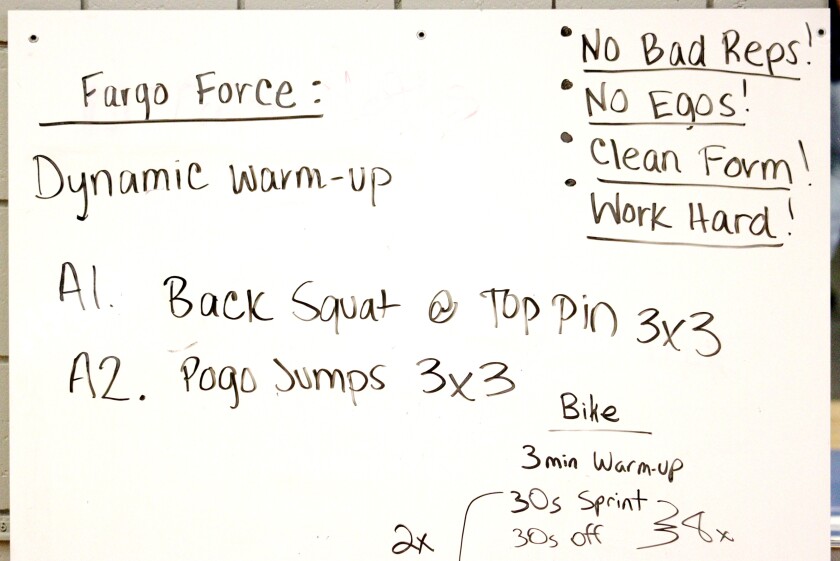 Fargo Force:
Dynamic Warm-up
• No Bad Reps!
• No Egos!
• Clean Form!
• Work Hard!
A1. Back Squat @ Top Pin 3x3
A2. Pogo Jumps 3x3
Bike
3min Warm-up
30s Sprint
30s off
8x
2x